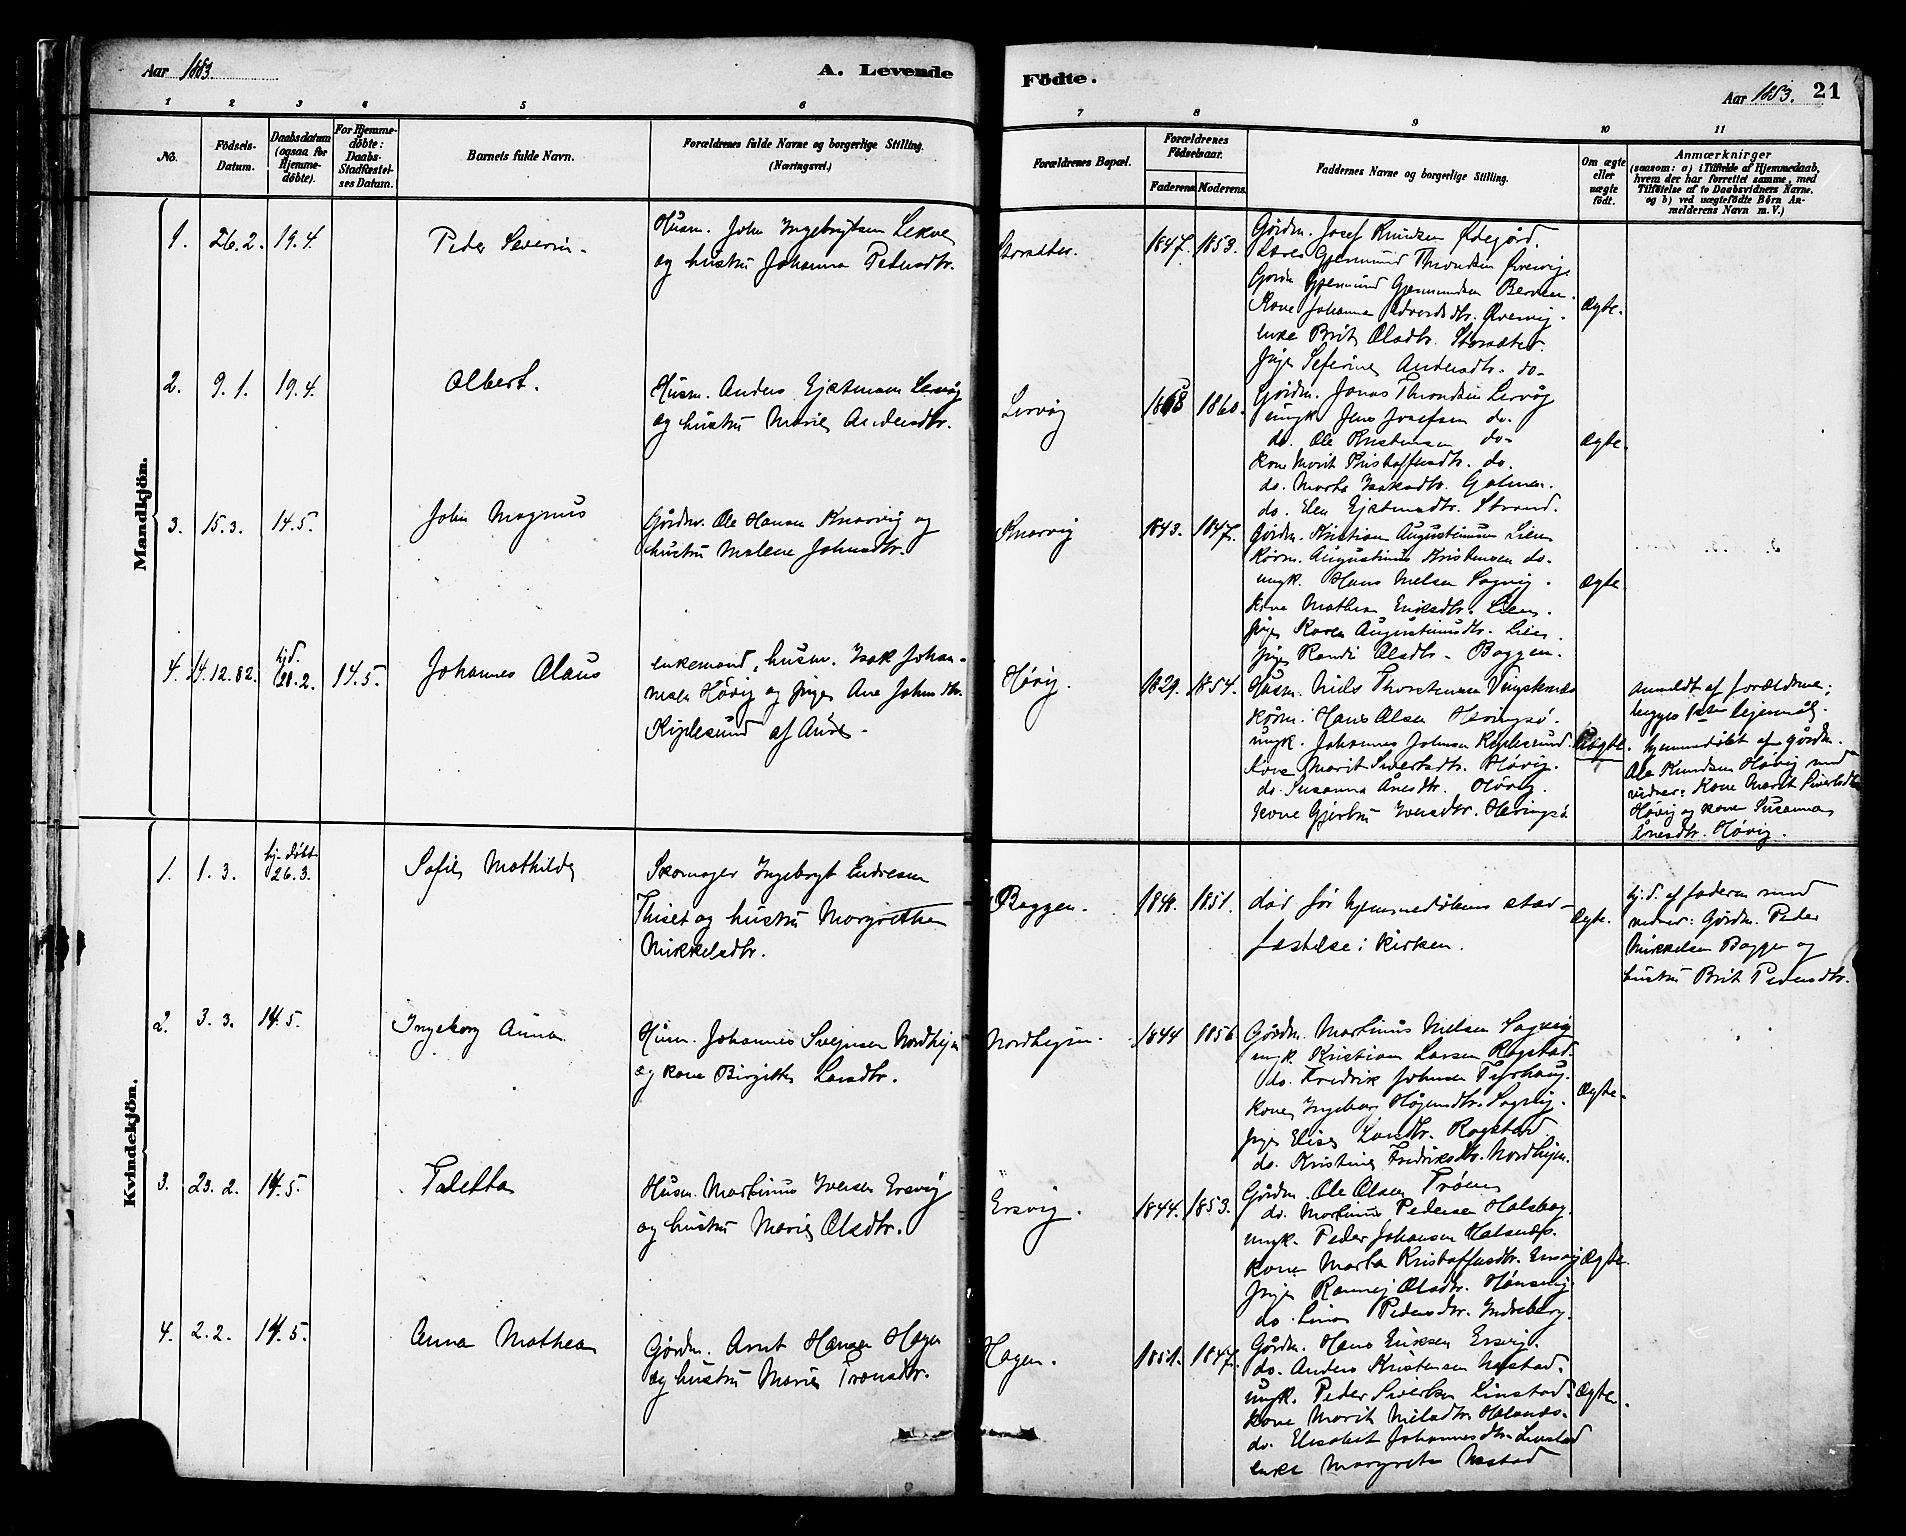 Aar 1883.
A. Levende
Födte.
Aar 1883.
21
1 2 3 4 5 6
7 8 9 10 11
No.
Födsels-Datum.
Daabsdatum (ogsaa for Hjemme-döbte).
For Hjemme-döbte: Daabs-Stadfæstel-ses Datum.
Barnets fulde Navn.
Forældrenes fulde Navne og borgerlige Stilling.
(Næringsvei.)
Forældrenes Bopæl.
Forældrenes Födselsaar.
Faderens
Moderens.
Faddernes Navne og borgerlige Stilling.
Om ægte eller uægte födt.
Anmærkninger
(saasom: a) i Tilfælde af Hjemmedaab,
hvem der har forrettet samme, med
Tilföielse af to Daabsvidners Navne.
og b) ved uægtefödte Börn An-
melderens Navn m. V.)
Mandkjön.
1. 26.2. 19.4 Peder Severin.
Husm. John Ingebrigtsen Lekve
og hustru Johanna Pedersdtr.
Storsæter. 1847. 1853.
Gårdm. Josef Knudsen Ødegård.
Gjermund Throndsen
Gårdm Gjermund Gjermundsen
Kone Johanna
enke Brit Olsdtr. Storsæter.
Pige Seferine Andersdtr. do-
Ægte.
2. 9.1. 19.4. Albert.
Husm. Anders Ejestensen Lervåg
og hustru Marie Andersdtr.
Lervåg 1858 1860.
Gårdm. Jonas Throndsen Lervåg
ungk. Jens Josefsen do.
do. Ole Kristensen do-
Kone Marit Kristoffersdtr. do.
do. Marta Isaksdtr.
do. Elen Ejestensdtr. Strand.
Ægte.
3. 15.3. 14.5. John Magnus
Gårdm. Ole Hansen Knarvig og
hustru Malene Johnsdtr.
Knarvig 1843. 1847.
Gårdm. Kristian Augustinusen Lien
Kårm. Augustinus Kristensen do-
ungk. Hans Nielsen Sagvig.
Kone Mathea Eriksdtr. Lien.
Pige Karen Augustinusdtr. Lien.
Pige Randi Olsdtr - Baggen.
Ægte.
4. 14.12.82. hjd. 28.2. 14.5. Johannes Olaus
enkemand, husm. Isak Johan-
nesen Høvig og Pige Ane Johnsdtr.
Kiplesund af Aure-
Høvig. 1829. 1854.
Husm. Niels Thorstensen
Kårm. Hans Olsen Heringsø.
ungk. Johannes Johnsen Kiplesund.
Kone Marit Sivertsdtr. Høvig.
do. Susanna Ånesdtr. Høvig.
Kone Gjertru Iversdtr. Heringsø
Uægte.
Anmeldt af forældrene;
begges 1ste lejermål.
hjemmedøbt af gårdm.
Ole Knudsen Høvig med
vidner: Kone Marit Sivertsdtr
Høvig og kone Susanna
Ånesdtr. Høvig.
Kvindekjön.
1. 1.3. hj. døbt 26.3. Sofie Mathilde
Skomager Ingebrigt Endresen
Thiset og hustru Margrethe
Mikkelsdtr.
Baggen. 1841. 1851.
død før hjemmedåbens stad-
fæstelse i kirken.
Ægte.
hj.d. af faderen med
vidner: Gårdm. Peder
Mikkelsen Baggen og
hustru Brit Pedersdtr.
2. 3.3. 14.5. Ingeborg Anna
Husm. Johannes Svejnsen Nordhejm
og kone Birgitte Larsdtr.
Nordhejm. 1844 1856.
Gårdm. Martinus Nielsen Sagvig
ungk. Kristian Larsen Rogstad.
do. Fredrik Johnsen Tyrhaug.
Kone Ingeborg Sagvig.
Pige Elise Larsdtr. Rogstad.
do. Kristine Fredriksdtr. Nordhejm.
Ægte.
3. 23.2. 14.5. Taletta
Husm. Martinus Iversen Ersvig
og hustru Marie Olsdtr.
Ersvig. 1844. 1853.
Gårdm. Ole Olsen Trøen
do. Martinus Pedersen
ungk. Peder Johansen
Kone Marta Kristoffersdtr. Ersvig
Pige Rannej Olsdtr.
do. Lina Pedersdtr.
Ægte.
4. 2.2. 14.5. Anna Mathea
Gårdm. Arnt Hansen Hagen
og hustru Marie Tronsdtr.
Hagen. 1851. 1847.
Gårdm. Hans Eriksen Ersvig.
do. Anders Kristensen Nastad.
ungk. Peder Sivertsen Linstad.
Kone Marit Nielsdtr.
do. Elisabet Johannesdtr. Linstad
enke Margrete Nastad
Ægte.